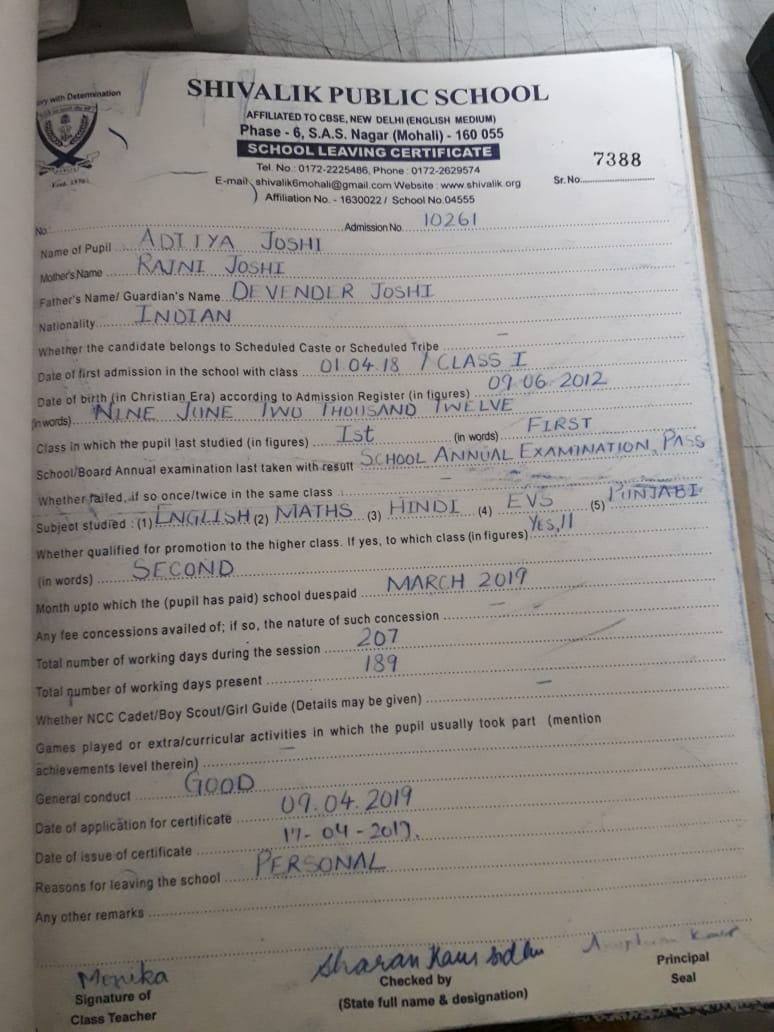 ory with Determination
Estd. 1976
SHIVALIK PUBLIC SCHOOL
AFFILIATED TO CBSE, NEW DELHI (ENGLISH MEDIUM)
Phase - 6, S.A.S. Nagar (Mohali) - 160 055
SCHOOL LEAVING CERTIFICATE
Tel. No.: 0172-2225486, Phone : 0172-2629574
E-mail : shivalik6mohali@gmail.com Website : www.shivalik.org
Sr. No. 7388
Affiliation No. - 1630022 / School No.04555
No. Admission No. 10261
Name of Pupil ADITYA JOSHI
Mother's Name RAJNI JOSHI
Father's Name/ Guardian's Name DEVENDER JOSHI
Nationality INDIAN
Whether the candidate belongs to Scheduled Caste or Scheduled Tribe –
Date of first admission in the school with class 01.04.18 / CLASS I
Date of birth (in Christian Era) according to Admission Register (in figures) 09.06.2012
(in words) NINE JUNE TWO THOUSAND TWELVE
Class in which the pupil last studied (in figures) Ist (in words) FIRST
School/Board Annual examination last taken with result SCHOOL ANNUAL EXAMINATION, PASS
Whether failed, if so once/twice in the same class –
Subject studied : (1) ENGLISH (2) MATHS (3) HINDI (4) EVS (5) PUNJABI
Whether qualified for promotion to the higher class. If yes, to which class (in figures) YES, II
(in words) SECOND
Month upto which the (pupil has paid) school duespaid MARCH 2019
Any fee concessions availed of; if so, the nature of such concession –
Total number of working days during the session 207
Total number of working days present 189
Whether NCC Cadet/Boy Scout/Girl Guide (Details may be given) –
Games played or extra/curricular activities in which the pupil usually took part (mention
achievements level therein) –
General conduct GOOD
Date of application for certificate 09.04.2019
Date of issue of certificate 17-04-2019.
Reasons for leaving the school PERSONAL
Any other remarks
Monika
Signature of
Class Teacher
Sharan Kaur Sidhu
Checked by
(State full name & designation)
Principal
Seal